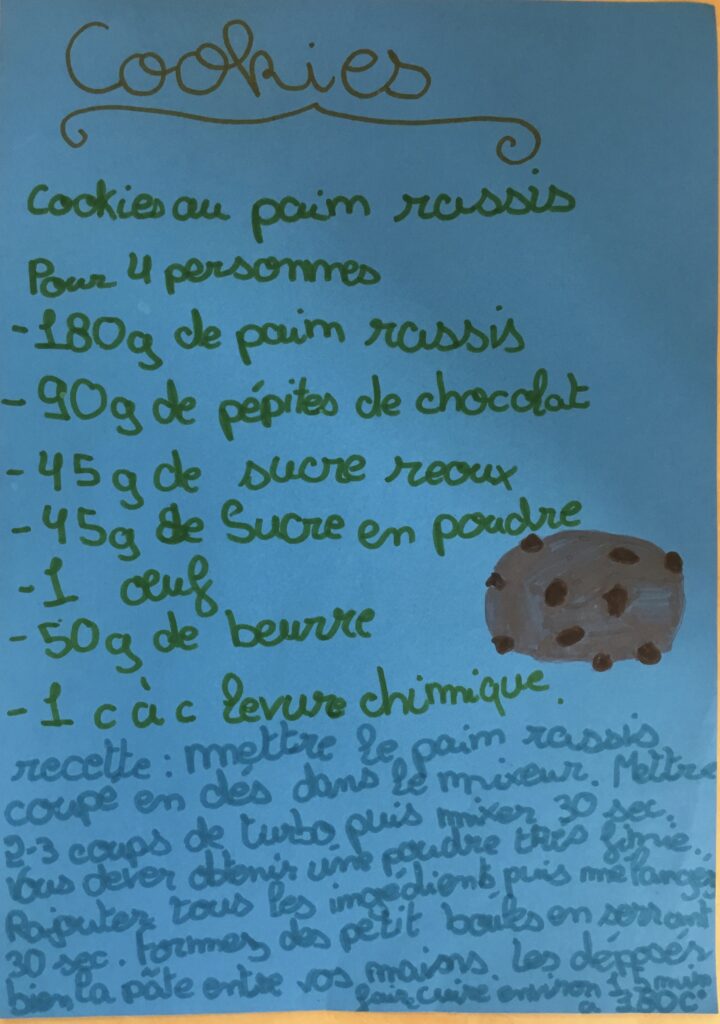 Cookies
Cookies au paim rassis
Pour 4 personnes
-180g de paim rassis
-90g de pépites de chocolat
-45g de sucre reoux
-45g de Sucre en poudre
-1 œuf
-50g de beurre
-1 c à c levure chimique.
recette : mettre le paim rassis
coupé en dés dans le mixeur. Mettre
2-3 coups de turbo puis mixer 30 sec.
Vous dever obtenir une poudre très fine.
Rajouter tous les ingrédient puis mélanger
30 sec. Formez des petit boules en serrant
bien la pâte entre vos mains. Les déppsés
faire cuire environ
à 180C°